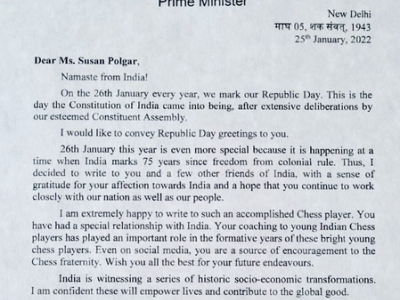 Prime Minister
New Delhi
माघ 05, शक संवत्, 1943
25th January, 2022
Dear Ms. Susan Polgar,
Namaste from India!
On the 26th January every year, we mark our Republic Day. This is the
day the Constitution of India came into being, after extensive deliberations by
our esteemed Constituent Assembly.
I would like to convey Republic Day greetings to you.
26th January this year is even more special because it is happening at a
time when India marks 75 years since freedom from colonial rule. Thus, I
decided to write to you and a few other friends of India, with a sense of
gratitude for your affection towards India and a hope that you continue to work
closely with our nation as well as our people.
I am extremely happy to write to such an accomplished Chess player. You
have had a special relationship with India. Your coaching to young Indian Chess
players has played an important role in the formative years of these bright young
chess players. Even on social media, you are a source of encouragement to the
Chess fraternity. Wish you all the best for your future endeavours.
India is witnessing a series of historic socio-economic transformations.
I am confident these will empower lives and contribute to the global good.